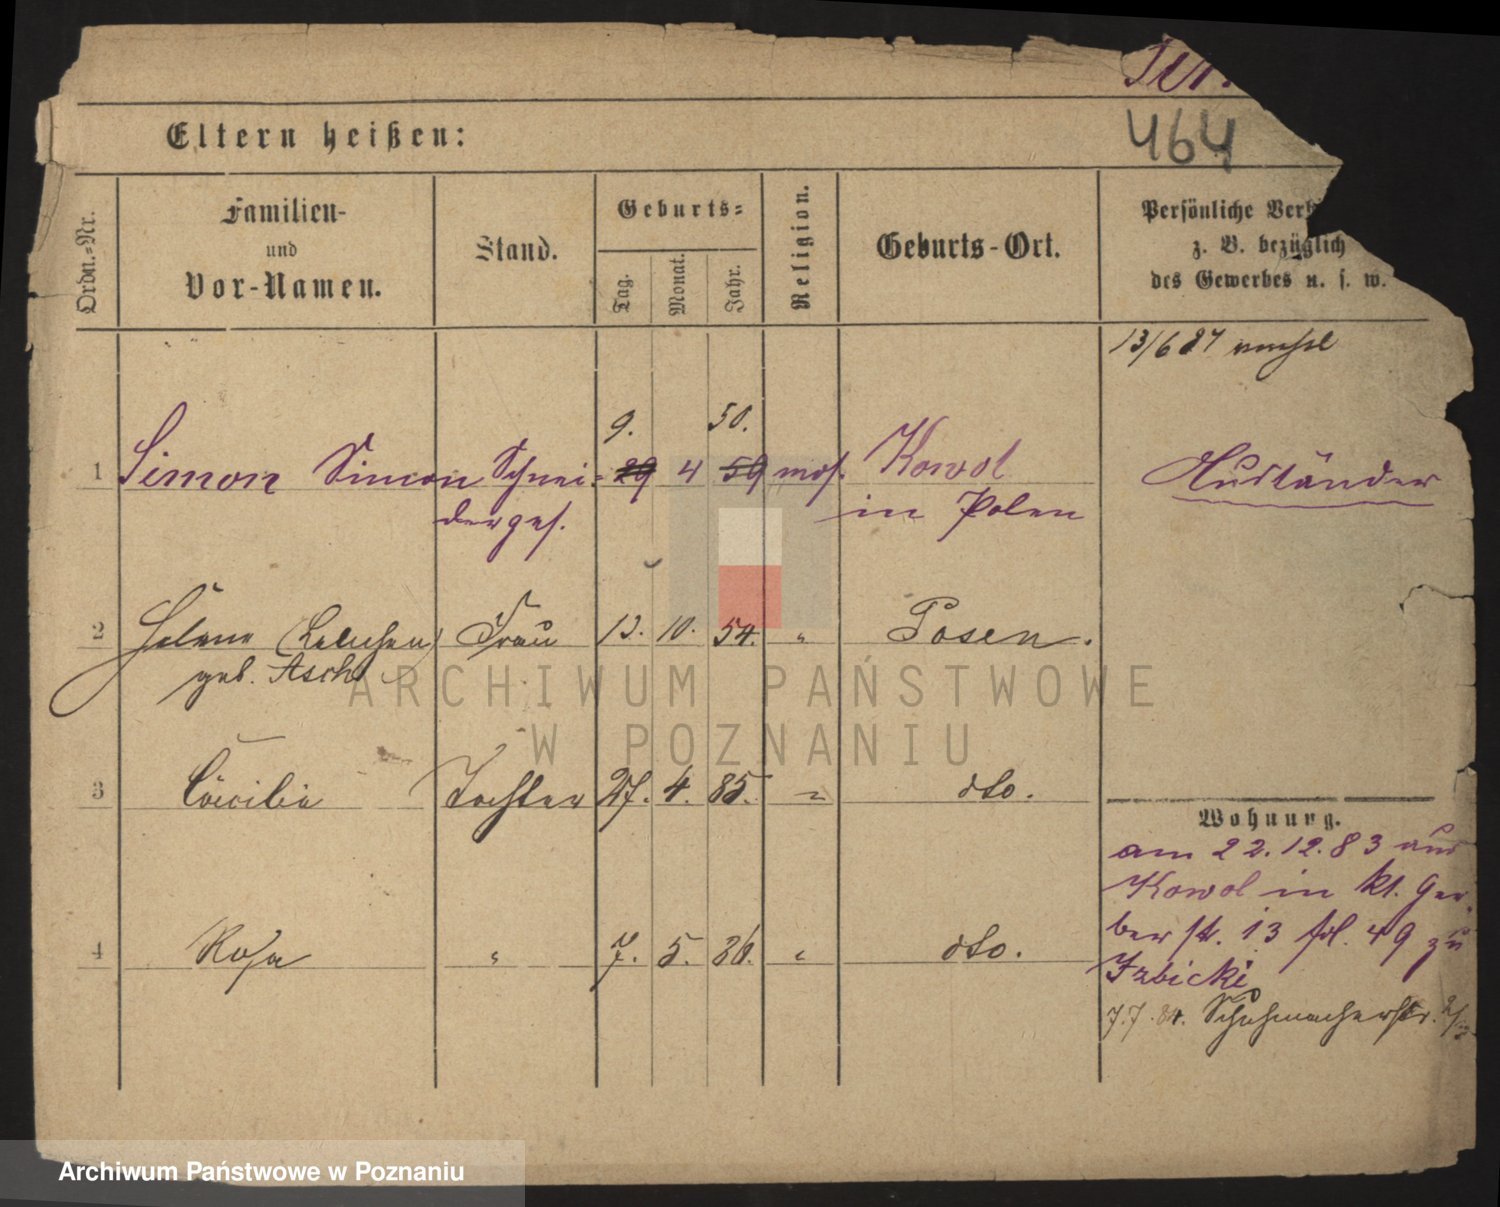 464
Eltern heißen:
Ordn.-Nr.
Familien-
und
Vor-Namen.
Stand.
Geburts-
Tag.
Monat.
Jahr.
Religion.
Geburts-Ort.
Persönliche
z. B. bezüglich
des Gewerbes u. s. w.
13/6 87
9. 50.
1 Simon Simon Schnei- 29 4 59 mos. Kowol Ausländer
derges. in Polen
2 Helene (Lebuchen) Frau 12. 10. 54. " Posen.
geb. Asch
3 Cäcilie Tochter 27. 4. 85. " dto.
Wohnung.
am 22.12.83 aus
Kowol in kl. Ger-
4 Rosa " 7. 5. 86. " dto.
berstr. 13 fol. 49 zu
Izbicki
7.7.84. Schuhmacherstr.
ARCHIWUM PAŃSTWOWE
W POZNANIU
Archiwum Państwowe w Poznaniu